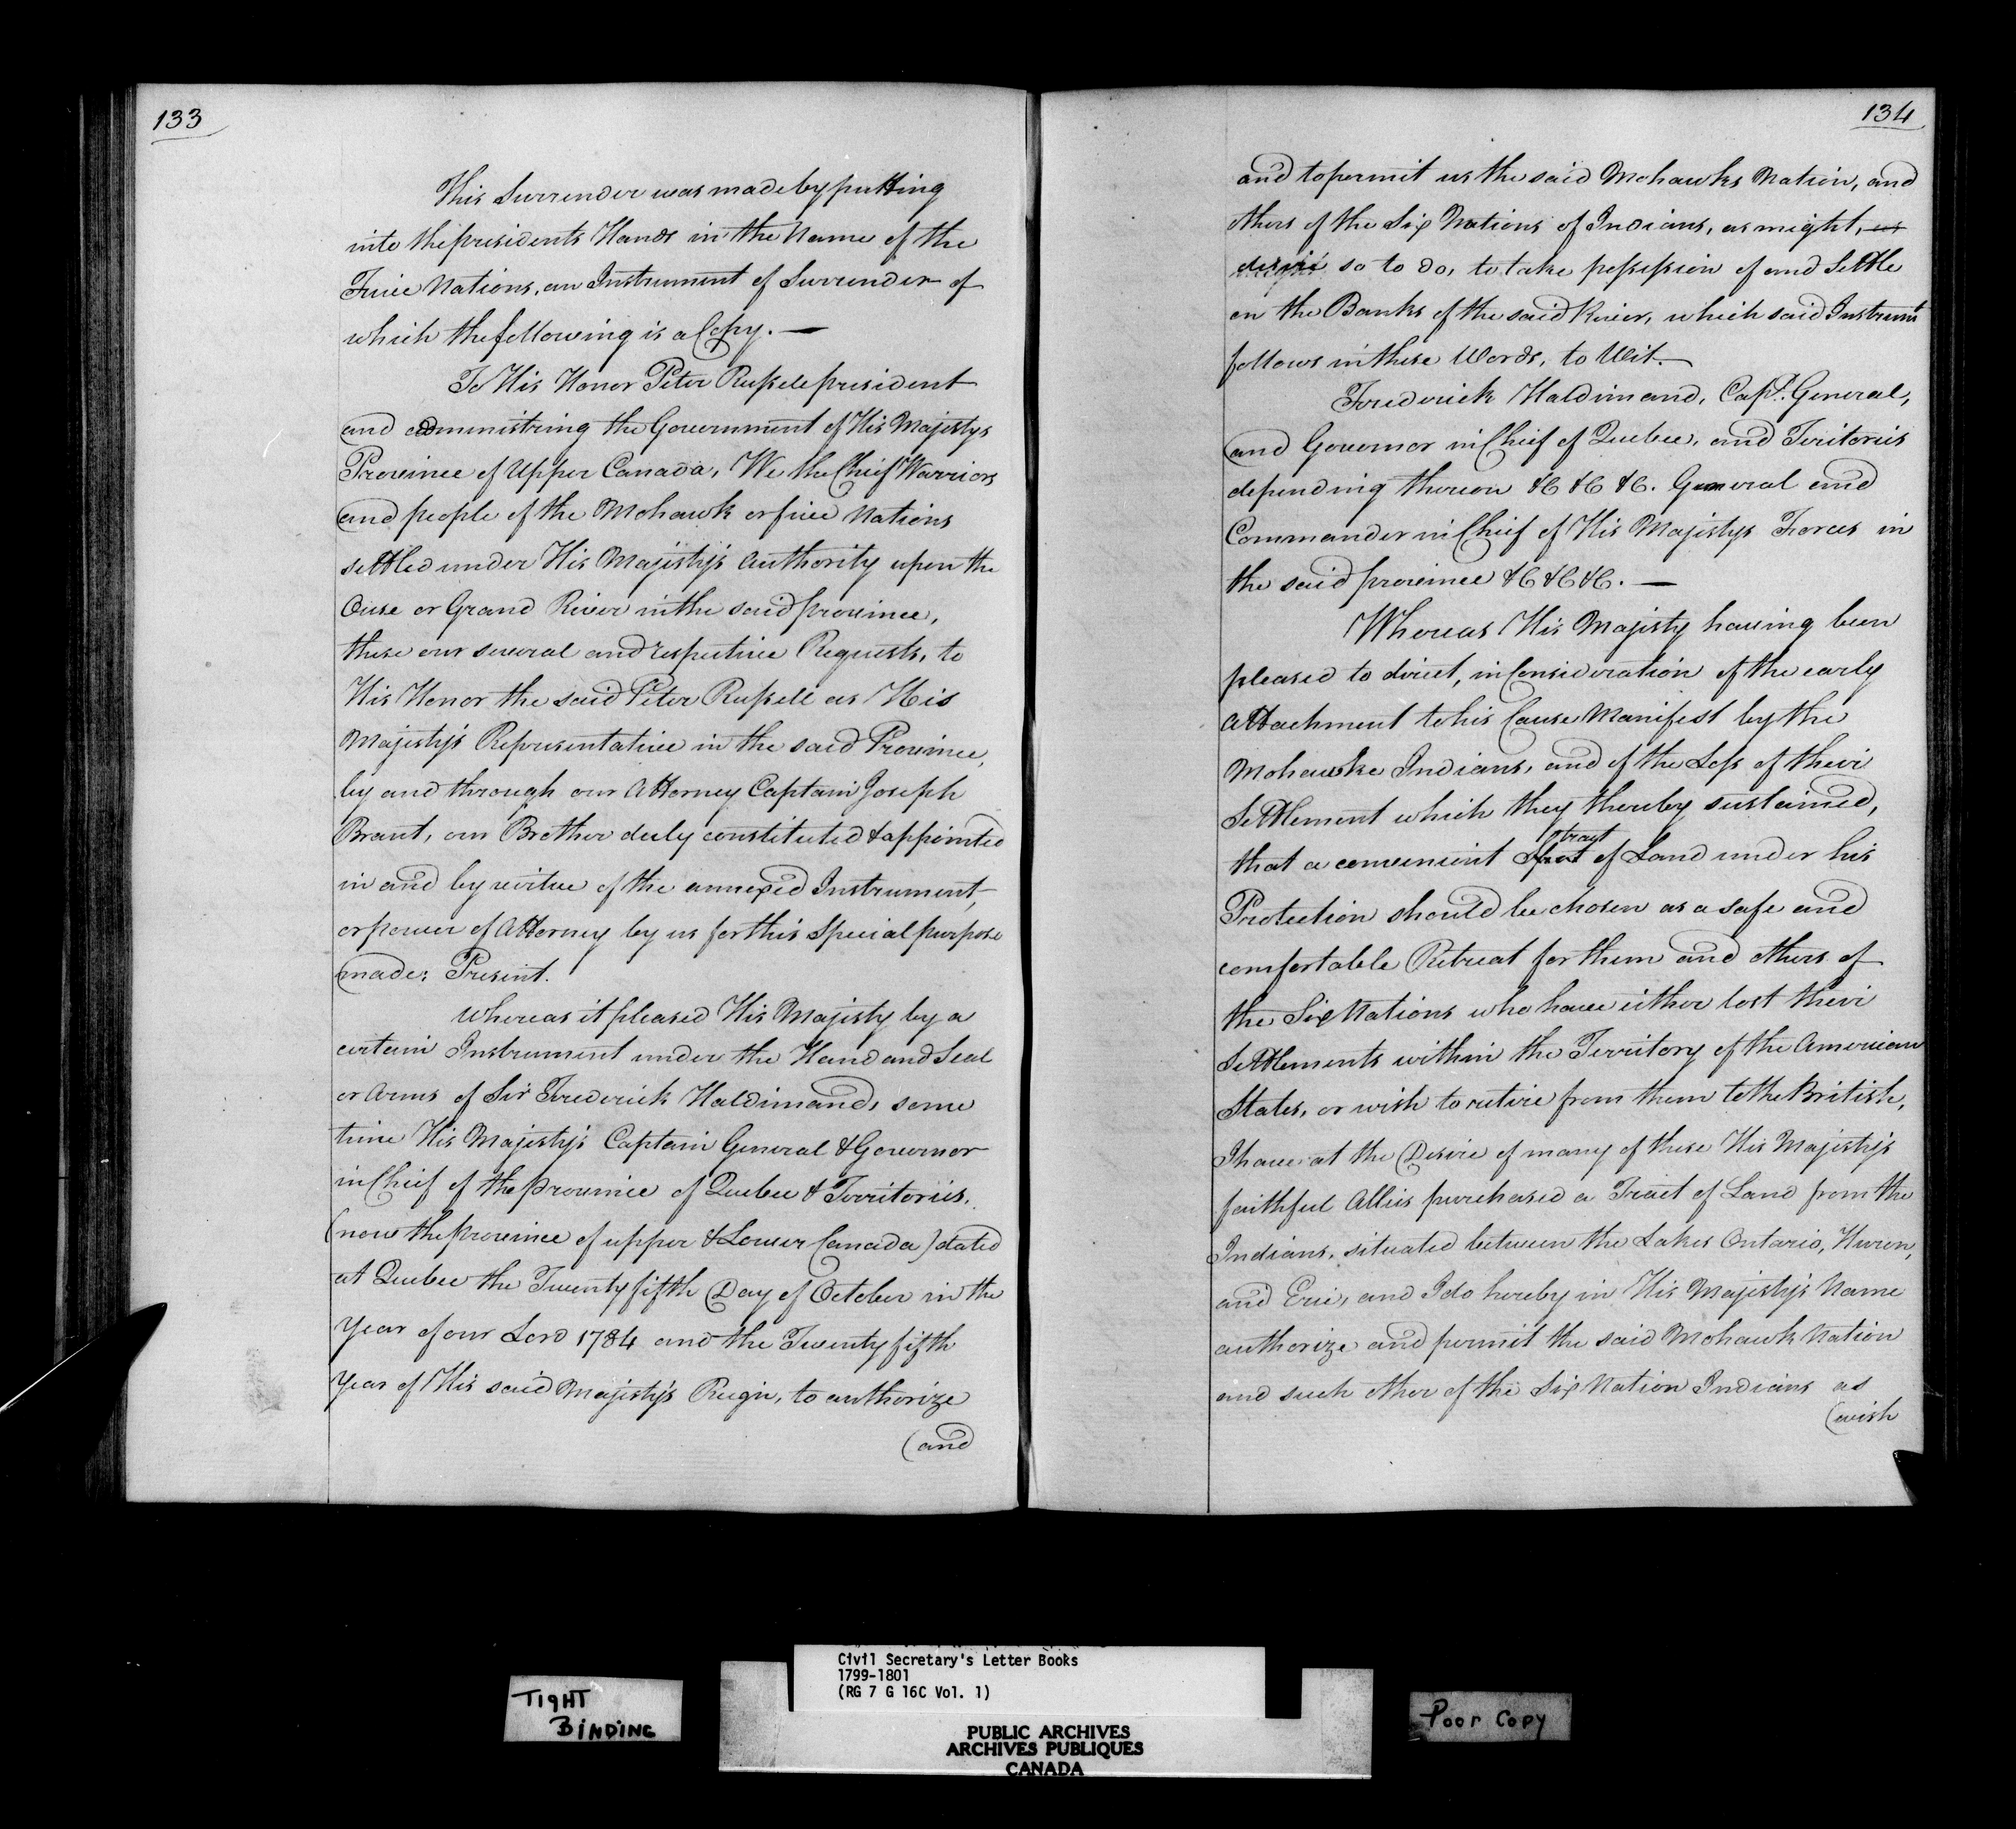 133
This Surrender was made by putting
into the presidents Hands in the Name of the
Five Nations, an Instrument of Surrender of
which the following is a Copy. —
To His Honor Peter Russele president
and administring the Government of His Majestys
Province of Upper Canada, We the Chief Warriors
and people of the Mohawk or five Nations
settled under His Majesty's Authority upon the
Ouse or Grand River in the said province,
these our several and respective Requests, to
His Honor the said Peter Russell as His
Majesty's Representative in the said Province,
by and through our Attorney Captain Joseph
Brant, our Brother duly constituted & appointed
in and by virtue of the annexed Instrument,
or power of Attorney by us for this Special purpose
made: Present.
Whereas it pleased His Majesty by a
certain Instrument under the Hand and Seal
or Arms of Sir Frederick Haldimand, some
time His Majesty's Captain General & Governor
in Chief of the province of Quebec & Territories,
(now the province of upper & Lower Canada) dated
at Quebec the Twenty fifth Day of October in the
Year of our Lord 1784 and the Twenty fifth
Year of His said Majesty's Reign, to authorize
(and
134
and to permit us the said Mohawks Nation, and
others of the Six Nations of Indians, as might, as
desire so to do, to take possession of and Settle
on the Banks of the said River, which said Instrumt
follows in these Words, to Wit. —
Frederick Haldimand, Capt. General,
and Governor in Chief of Quebec, and Teritories
depending thereon &C &C &C. General and
Commander in Chief of His Majestys Forces in
the said province &C &C &C. —
Whereas His Majesty having been
pleased to direct, in Consideration of the early
Attachment to his Cause Manifest by the
Mohawke Indians, and of the Loss of their
Settlement which they thereby sustained,
tract
that a convenient Spot of Land under his
Protection should be chosen as a safe and
comfortable Retreat for them and others of
the Six Nations who have either lost their
Settlements within the Territory of the American
States, or wish to retire from them to the British,
I have at the Desire of many of these His Majesty's
faithful Allies purchased a Tract of Land from the
Indians, situated between the Lakes Ontario, Huron,
and Erie, and I do hereby in His Majesty's Name
authorize and permit the said Mohawk Nation
and such other of the Six Nation Indians as
(wish
Civil Secretary's Letter Books
1799-1801
(RG 7 G 16C Vol. 1)
TIGHT
BINDING
PUBLIC ARCHIVES
ARCHIVES PUBLIQUES
CANADA
Poor Copy